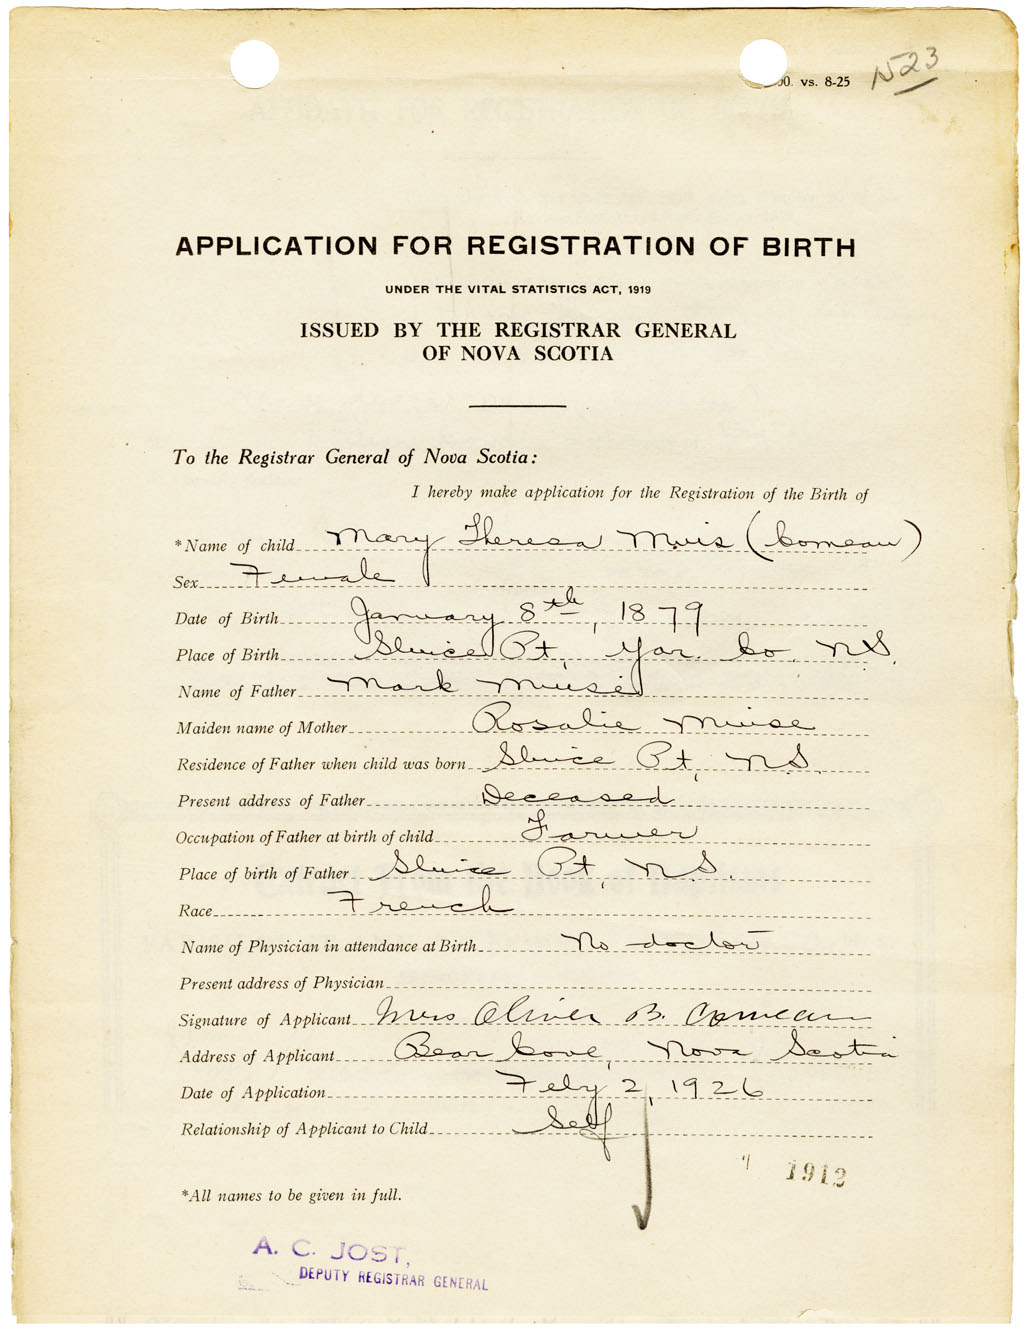 00. vs. 8-25
N523
APPLICATION FOR REGISTRATION OF BIRTH
UNDER THE VITAL STATISTICS ACT, 1919
ISSUED BY THE REGISTRAR GENERAL
OF NOVA SCOTIA
To the Registrar General of Nova Scotia:
I hereby make application for the Registration of the Birth of
*Name of child Mary Theresa Muis (Comeau)
Sex Female
Date of Birth January 8th, 1879
Place of Birth Sluice Pt, Yar. Co. N.S.
Name of Father Mark Muise
Maiden name of Mother Rosalie Muise
Residence of Father when child was born Sluice Pt, N.S.
Present address of Father Deceased
Occupation of Father at birth of child Farmer
Place of birth of Father Sluice Pt, N.S.
Race French
Name of Physician in attendance at Birth No doctor
Present address of Physician
Signature of Applicant Mrs Oliver B. Comeau
Address of Applicant Bear Cove, Nova Scotia
Date of Application Feby 2, 1926
Relationship of Applicant to Child Self
1912
*All names to be given in full.
A. C. JOST,
DEPUTY REGISTRAR GENERAL